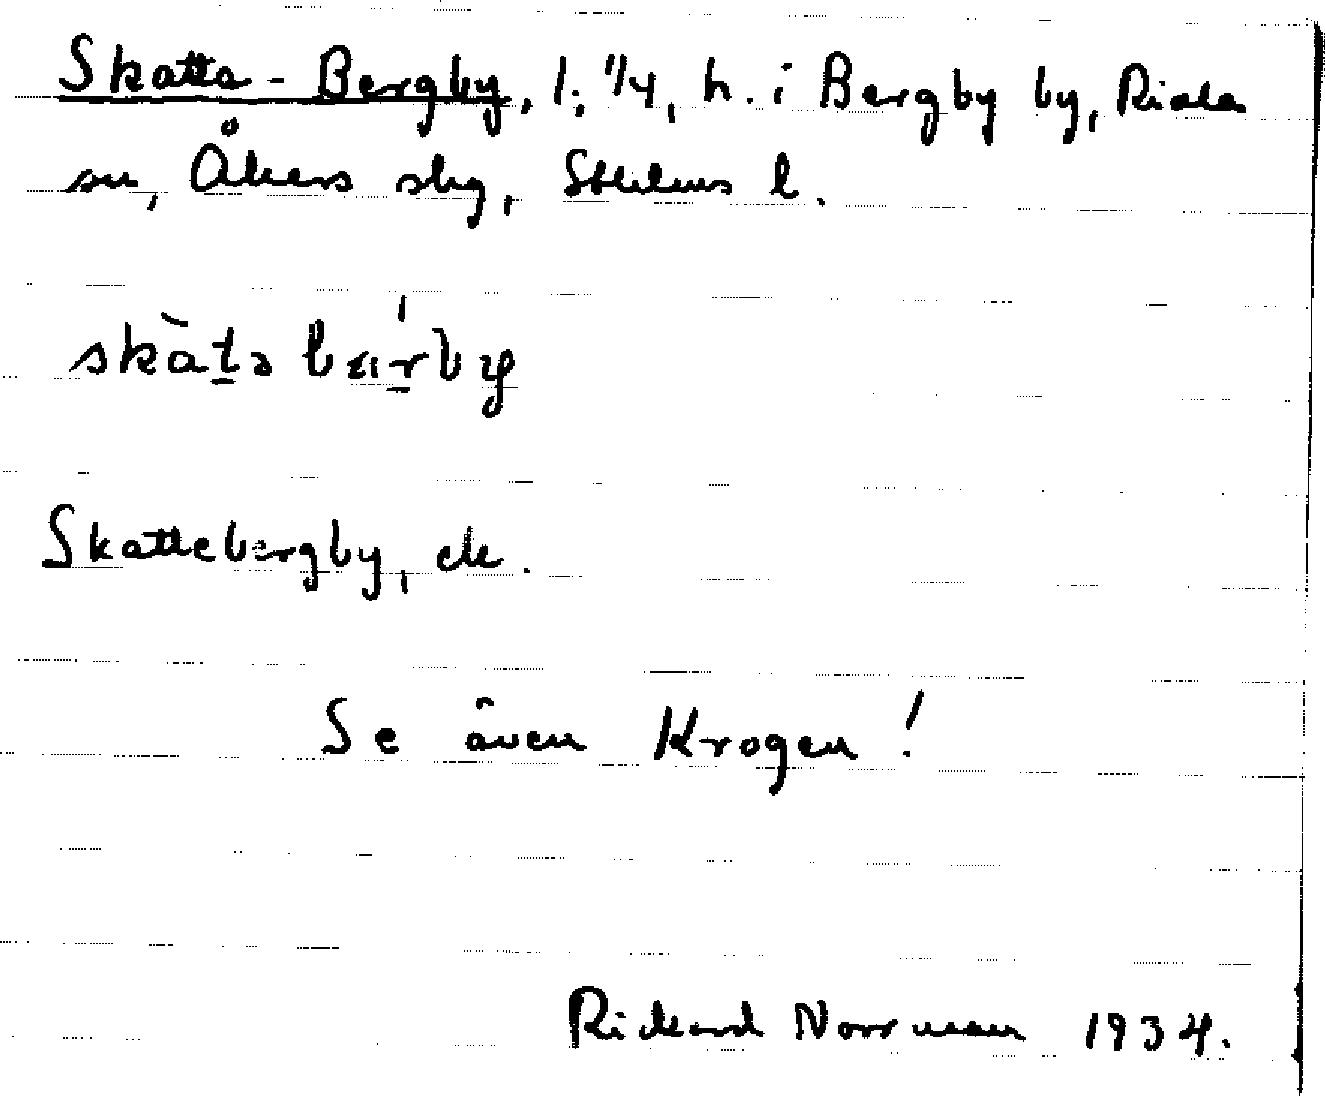 Skatta-Bergby, 1, 1/4, h. i Bergby by, Riala
sn, Åkers skg, Sthlms l.
skàta bæ̀rby
Skattebergby, ek.
Se även Krogen!
Rickard Norrman 1934.